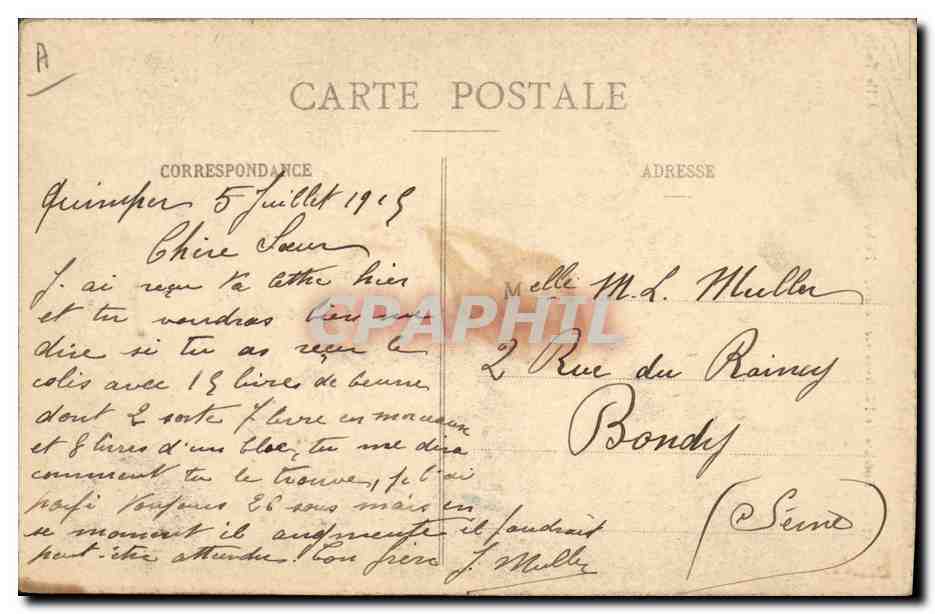 A
CARTE POSTALE
CORRESPONDANCE
ADRESSE
Quimper 5 Juillet 1915
Chère Sœur
J'ai reçu ta lettre hier
et tu voudras bien me
dire si tu as reçu le
colis avec 15 livres de beurre
dont 2 sorte 7 livre en morceaux
et 8 livres d'un bloc, tu me dira
comment tu le trouve, je l'ai
payé toujours 26 sous mais en
se moment il augmente il faudrait
peut-être attendre. Ton frère J. Muller
Melle M. L. Muller
2 Rue du Raincy
Bondy
(Seine)
CPAPHIL